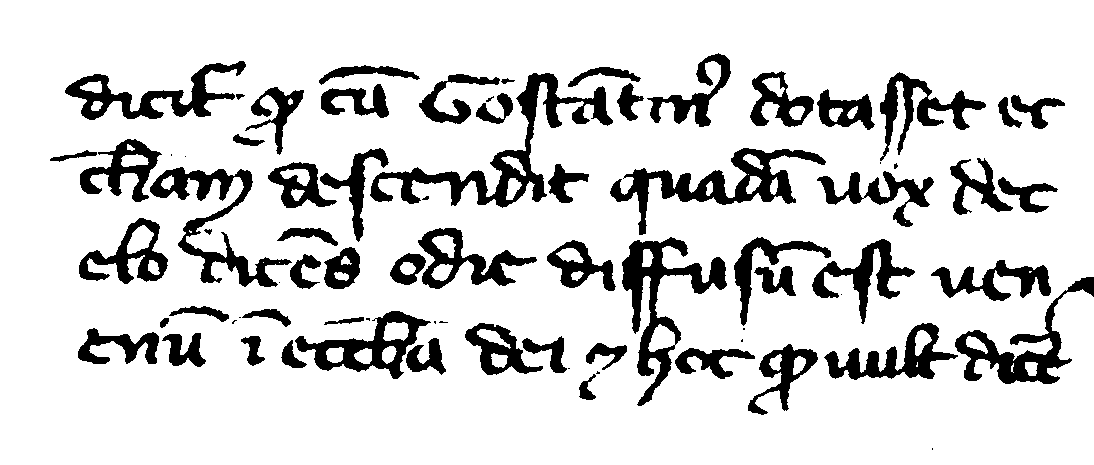 dicit̃ qͥ cū Gostātinꝰ dotasset ec
cł̄iam descendit quadā uox de c
elo dicēs odie diffusū est uen
enū ī eccł̄ia dei ⁊ hoc qͥ uult dicẽ